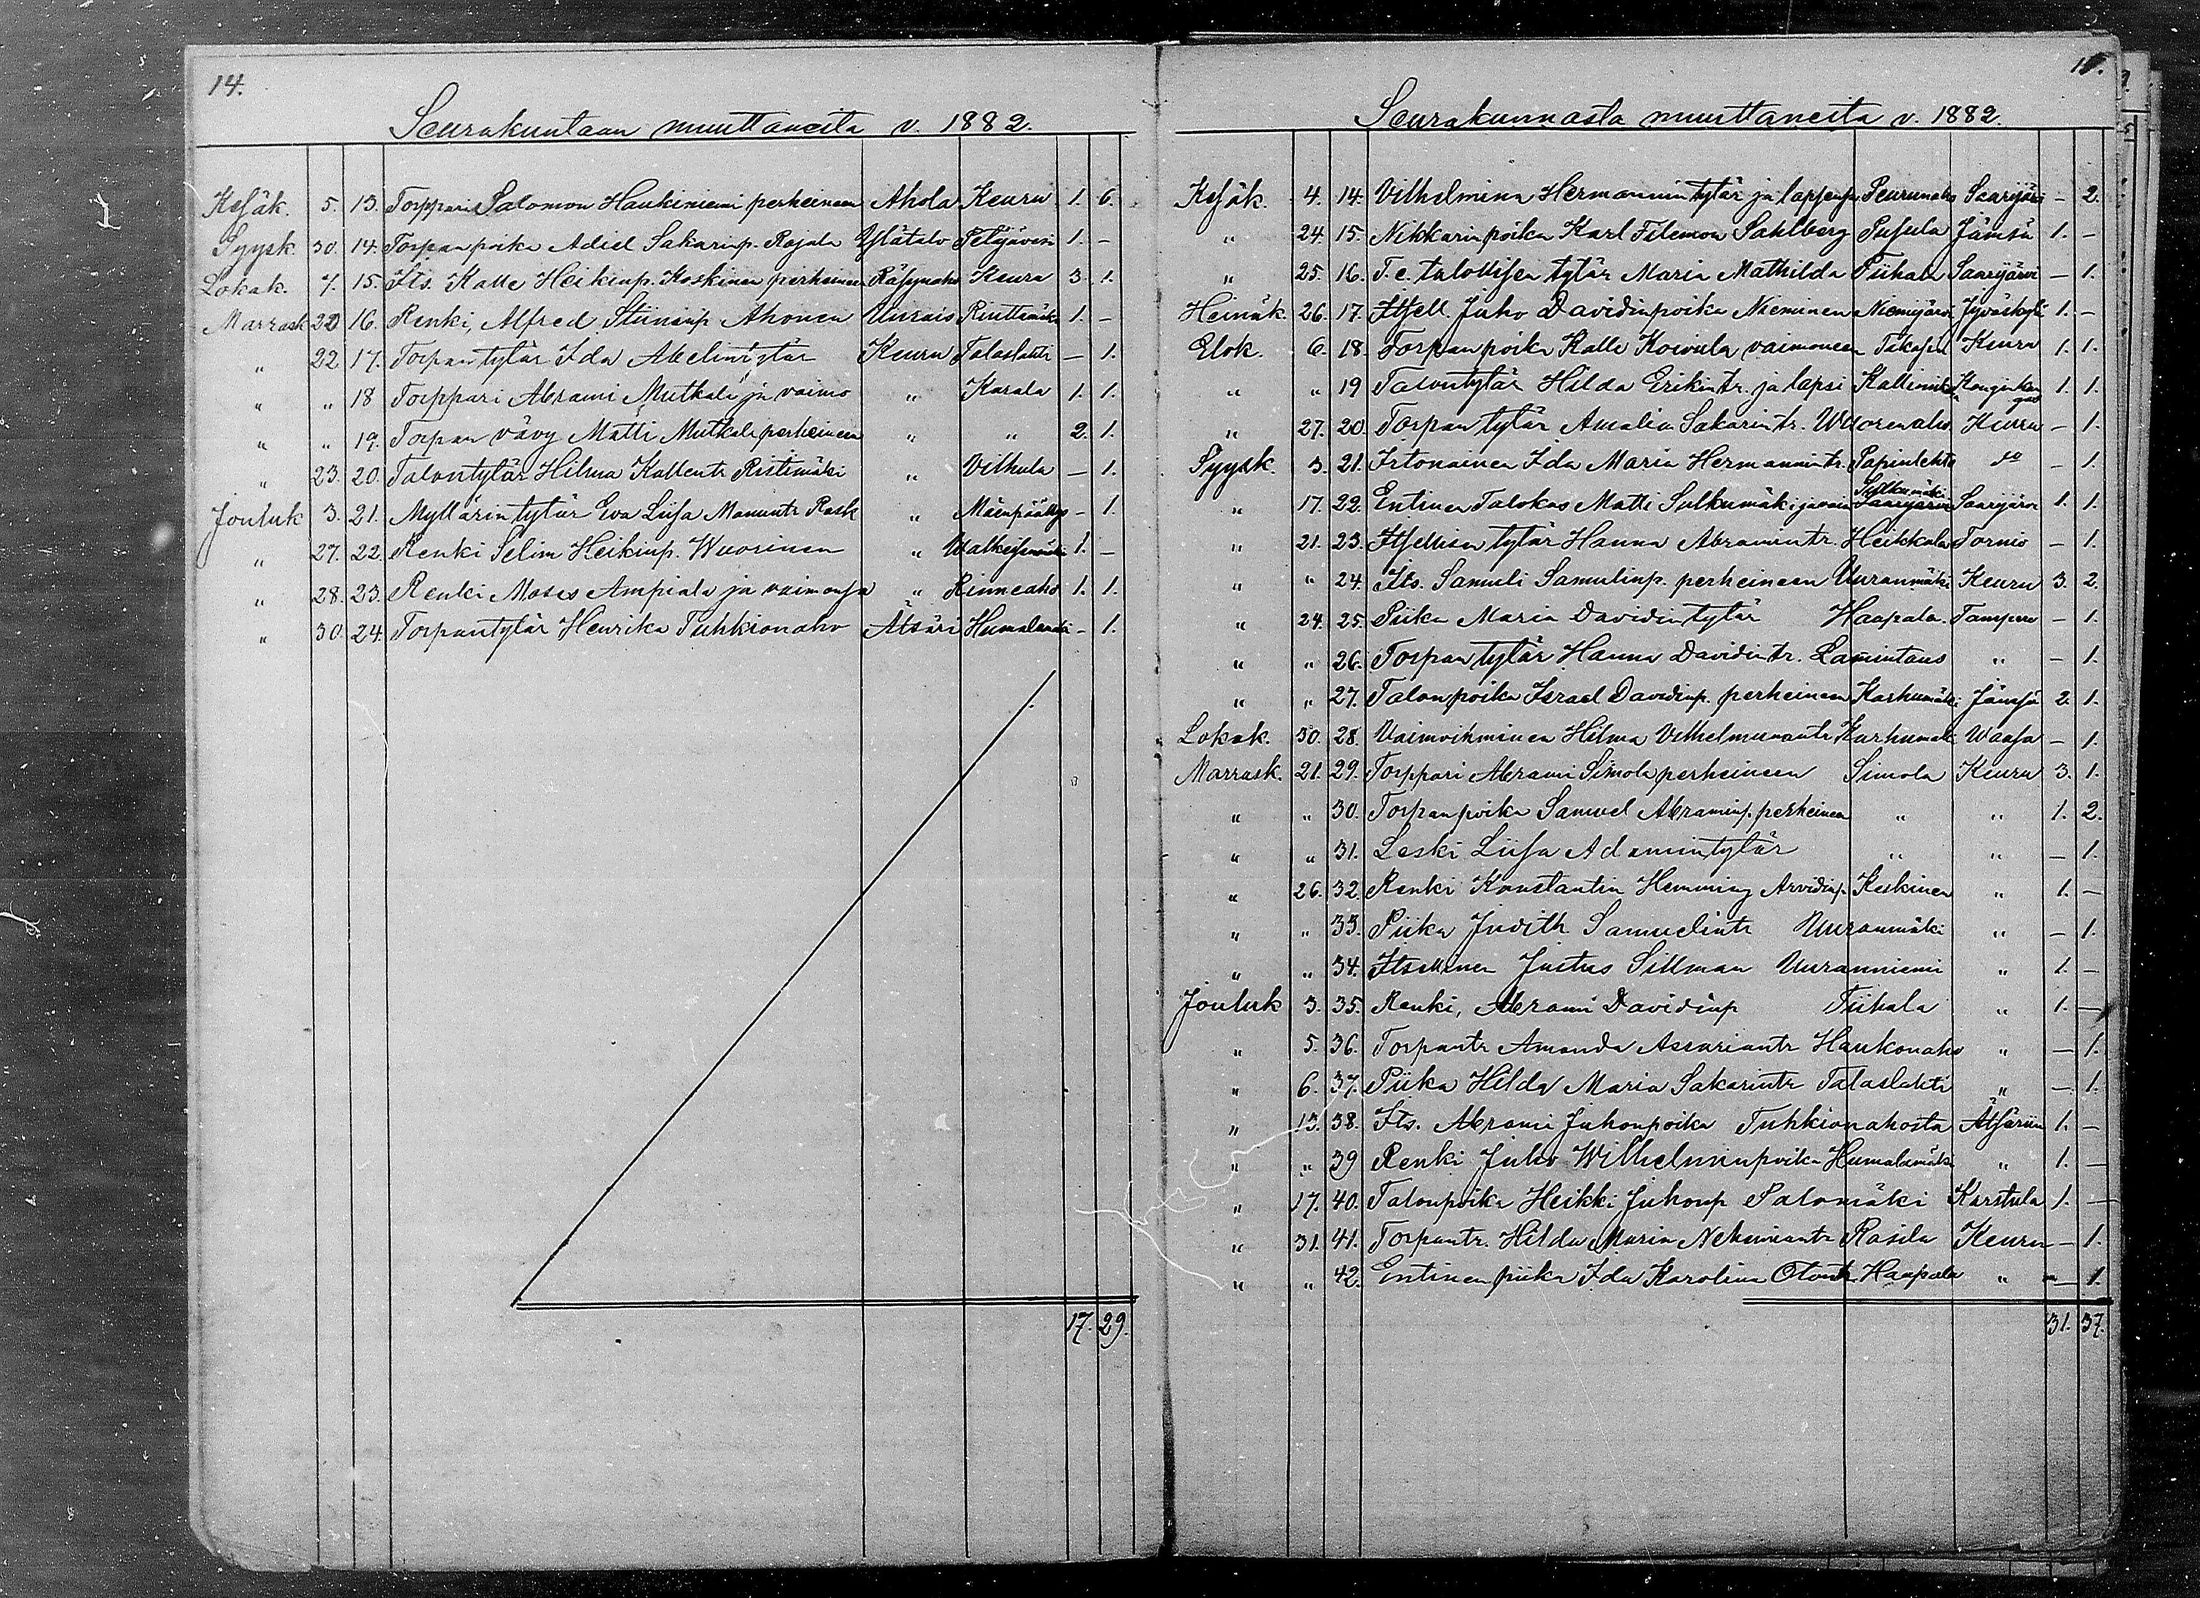 14.
Seurakuntaan muuttaneita v. 1882.
Kesäk. 5. 13. Torppari Salomon Haukiniemi perheineen Ahola Keuru 1. 6.
Syysk. 30 14. Torpanpoika Adiel Sakarinp. Rajala Ylätalo Petäjävesi 1. –
Lokak. 7. 15. Its. Kalle Heikinp. Koskinen perheineen Keuru 3. 1.
Marrask 20 16. Renki, Alfred Stiinanp Ahonen Uurais 1. –
" 22 17. Torpantytär Ida Abelintytär Keuru Talaslahti – 1.
" " 18 Torppari Abrami Mutkala ja vaimo " Karala 1. 1.
" " 19. Torpan vävy Matti Mutkala perheineen " " 2. 1.
" 23. 20. Talontytär Hilma Kallentr Ristimäki " Vilhula – 1.
Jouluk 3. 21. Myllärintytär Eva Liisa Manuntr Rask " – 1.
" 27. 22. Renki Selim Heikinp. Wuorinen " 1. –
" 28. 23. Renki Moses Ampiala ja vaimonsa " Rinneaho 1. 1.
" 30 24. Torpantytär Henrika Tuhkionaho Ätsäri – 1.
17. 29.
Seurakunnasta muuttaneita v. 1882.
Kesäk. 4. 14. Vilhelmina Hermannintytär ja lapsensa Saarijärvi – 2.
" 24. 15. Nikkarinpoika Karl Filemon Sahlberg Jämsä 1. –
" 25. 16. T. e. talollisen tytär Maria Mathilda Tiihala Saarijärvi – 1.
Heinäk. 26. 17. Itsell. Juho Davidinpoika Nieminen Niemijärvi Jyväskylä 1. –
Elok. 6. 18. Torpanpoika Kalle Koivula vaimoneen Keuru 1. 1.
" " 19 Talontytär Hilda Erikintr. ja lapsi Konginkangas 1. 1.
" 27. 20. Torpantytär Amalia Sakarintr. Wuorenaho Keuru – 1.
Syysk. 3. 21. Irtonainen Ida Maria Hermannintr. do – 1.
" 17. 22. Entinen Talokas Matti Sulkumäki ja vaim Sulkumäki Saarijärvi 1. 1.
" 21. 23. Itsellisen tytär Hanna Abramintr. Heikkala Tornio – 1.
" " 24. Its. Samuli Samulinp. perheineen Uuranmäki Keuru 3. 2.
" 24. 25. Piika Maria Davidintytär Haapala. Tampere – 1.
" " 26. Torpantytär Hanna Davidintr. Lamintaus " – 1.
" " 27. Talonpoika Israel Davidinp. perheineen Karhumäki Jämsä 2. 1.
Lokak. 30. 28. Vaimoihminen Hilma Vilhelmiinantr Karhumäki Waasa – 1.
Marrask. 21. 29. Torppari Abrami Simola perheineen Simola Keuru 3. 1.
" " 30. Torpanpoika Samuel Abraminp. perheineen " " 1. 2.
" " 31. Leski Liisa Adamintytär " " – 1.
" 26. 32. Renki Konstantin Hemming Arvidinp. Keskinen " 1. –
" " 33. Piika Judith Samuelintr Uuranmäki " – 1.
" " 34. Itsellinen Justus Sillman Uuranniemi " 1. –
Jouluk 3. 35. Renki, Abrami Davidinp Tiihala " 1. –
" 5. 36. Torpantr Amanda Assariantr Haukonaho " – 1.
" 6. 37. Piika Hilda Maria Sakarintr Talaslahti " – 1.
" 13. 38. Its. Abrami Juhonpoika Tuhkionahosta Ätsäriin 1. –
" " 39 Renki Juho Wilhelminpoika Humalamäki " 1. –
" 17. 40. Talonpoika Heikki Juhonp Salomäki Karstula 1. –
" 31. 41. Torpantr. Hilda Maria Nehemiantr Rasila Keuru – 1.
" " 42. Entinen piika Ida Karolina Otontr Haapala " – 1.
31. 37.